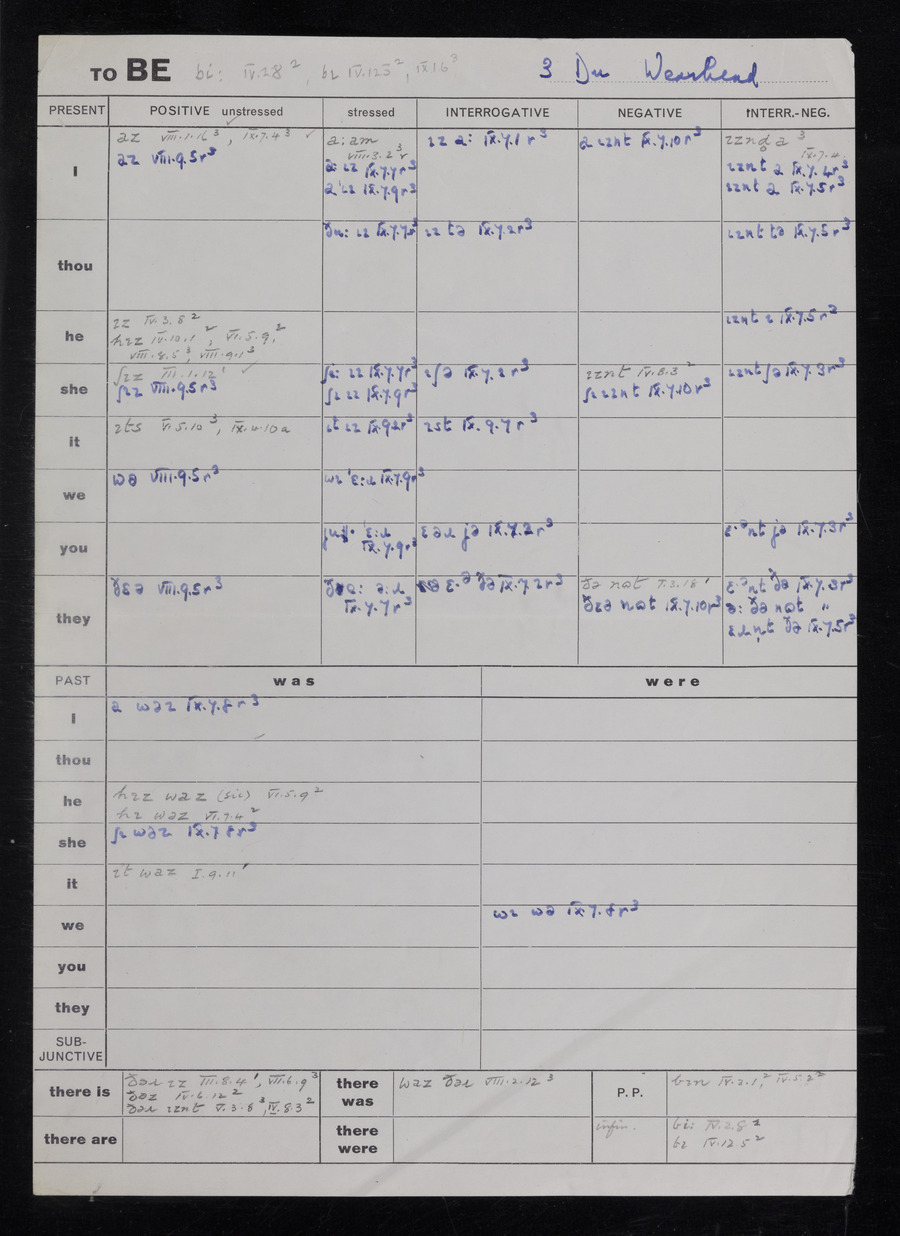 TO BE bi: IV.2.8², bɪ IV.12.5², IX.1.6³ 3 Du Wearhead
PRESENT POSITIVE unstressed stressed INTERROGATIVE NEGATIVE INTERR.-NEG.
I
az VIII.1.16³, IX.7.4³ ✓
az VIII.9.5r³
a:am
VIII.3.2³
IX.7.7r³
IX.7.9r³
ɪz a: IX.7.1r³
a ɪznt IX.7.10r³
IX.7.4.
ɪznt a IX.7.4r³
ɪznt a IX.7.5r³
thou
ðu: ɪz IX.7.7r³
ɪz tə IX.7.2r³
ɪznt tə IX.7.5r³
he
ɪz IV.3.8²
hɪz IV.10.1², VI.5.9²
VIII.8.5³, VIII.9.1³
ɪznt ɪ IX.7.5r²
she
ʃɪz III.1.12¹ ✓
ʃɪz VIII.9.5r³
ʃi: ɪz IX.7.7r³
ʃɪ ɪz IX.7.9r³
ɪʃə IX.7.2r³
ɪznt IV.8.3²
ʃɪ ɪznt IX.7.10r³
ɪznt ʃə IX.7.3r³
it
ɪts V.5.10³, IX.4.10a
ɪt ɪz IX.9.2r³
ɪst IX.9.7r³
we
wə VIII.9.5r³
wɪ 'ɛ:ɹ IX.7.9r³
you
'ɛ:ɹ
IX.7.9r³
ɛəɹ jə IX.7.2r³
ɛ·ᵊnt jə IX.7.3r³
they
ðɛə VIII.9.5r³
IX.7.7r³
ɛ·ᵊ ðə IX.7.2r³
ðə nɒt V.3.18¹
ðɛə nɒt IX.7.10r³
ɛ·ᵊnt ðə IX.7.3r³
ə: ðə nɒt "
ɛɹnt ðə IX.7.5r³
PAST was were
I a waz IX.7.8r³
thou
he hɪz waz (sic) VI.5.9²
hɪ waz VI.7.4²
she ʃɪ waz IX.7.8r³
it ɪt waz I.9.11¹
we wɪ wə IX.7.8r³
you
they
SUB-
JUNCTIVE
there is
ðəɹ ɪz III.8.4¹, VII.6.9³
ðəz IV.6.12²
ðəɹ ɪznt V.3.8³, IV.8.3²
there
was
waz ðəɹ VIII.2.12³
P.P.
bɪn IV.2.1², IV.5.2²
there are
there
were
infin.
bi: IV.2.8²
bɪ IV.12.5²